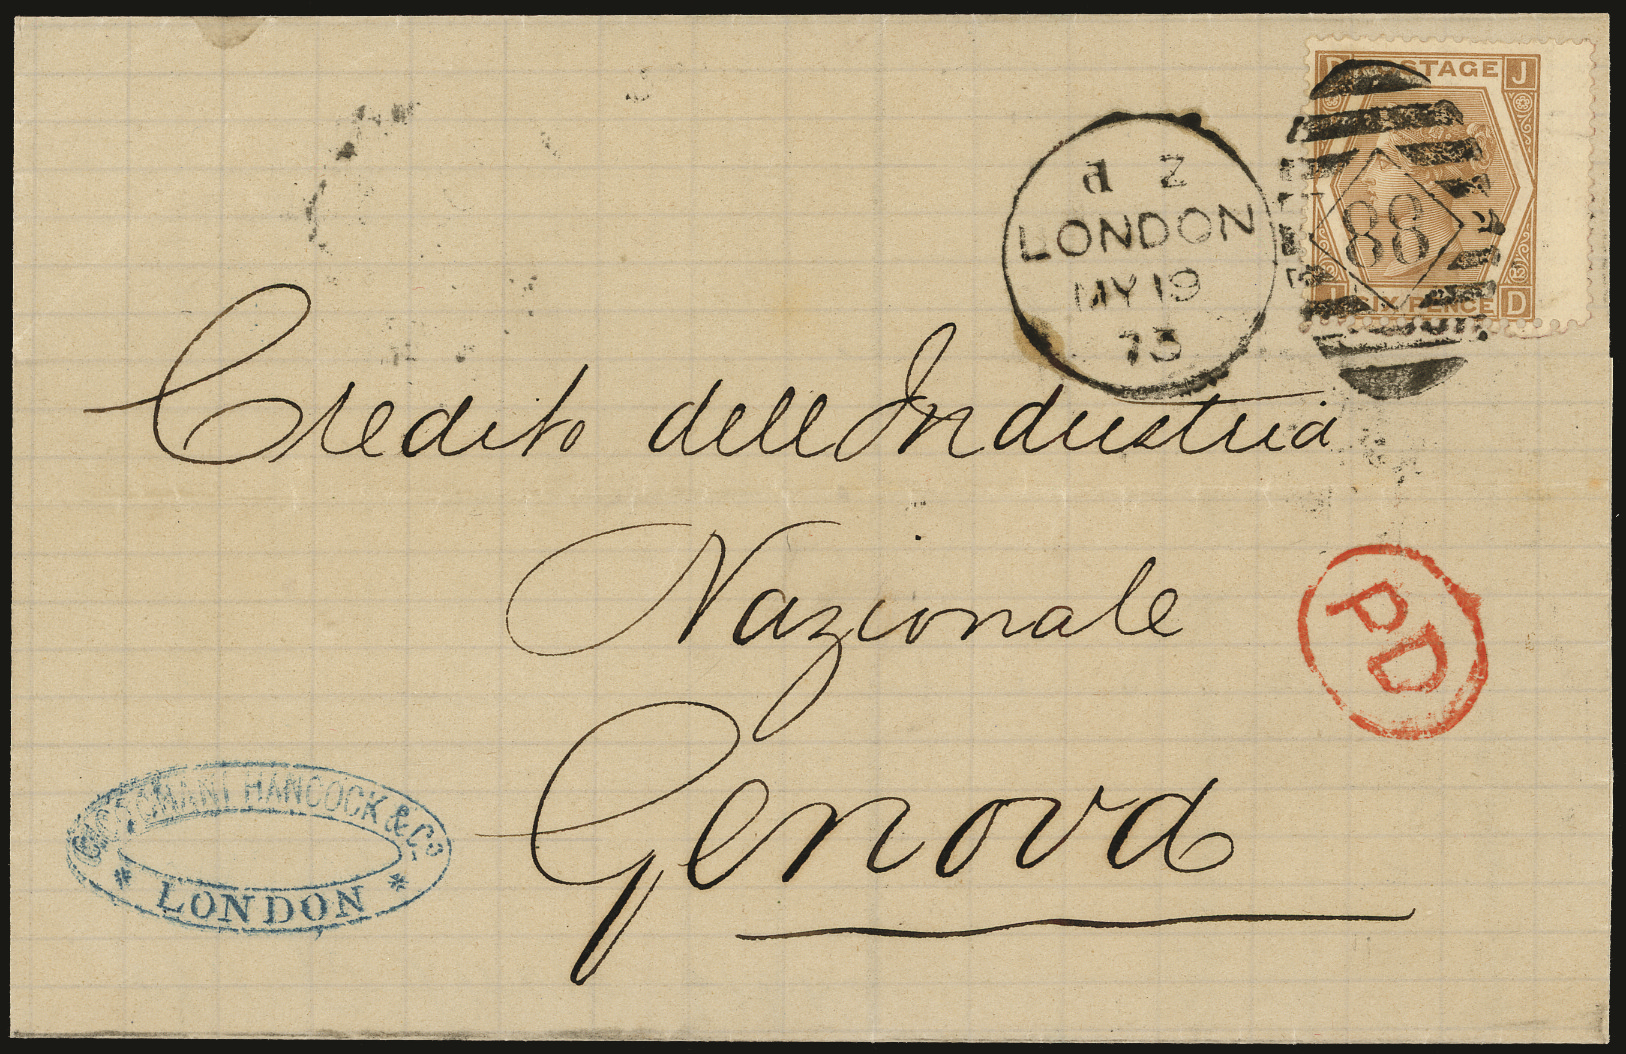 POSTAGE J
SIX PENCE D
88
LONDON
MY 19
73
Credito dell Industria
Nazionale
Genova
PD
HANCOCK & Co
* LONDON *